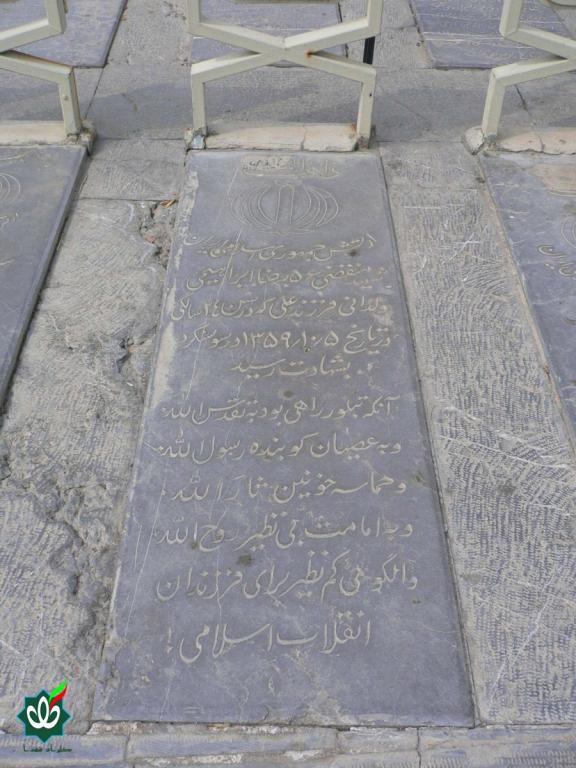 ارتش جمهوری اسلامی ایران
شهید منقضی ۵۶ رضا ابراهیمی
ولانی فرزند علی که در سن ۲۴ سالگی
در تاریخ ۱۳۵۹/۱۰/۵ در سوسنگرد
بشهادت رسید
آنکه تبلور راهی بود به تقدس الله
و به عصیان کوبنده رسول الله
و حماسه خونین ثار الله
و به امامت بی نظیر روح الله
و الگوئی کم نظیر برای فرزندان
انقلاب اسلامی !